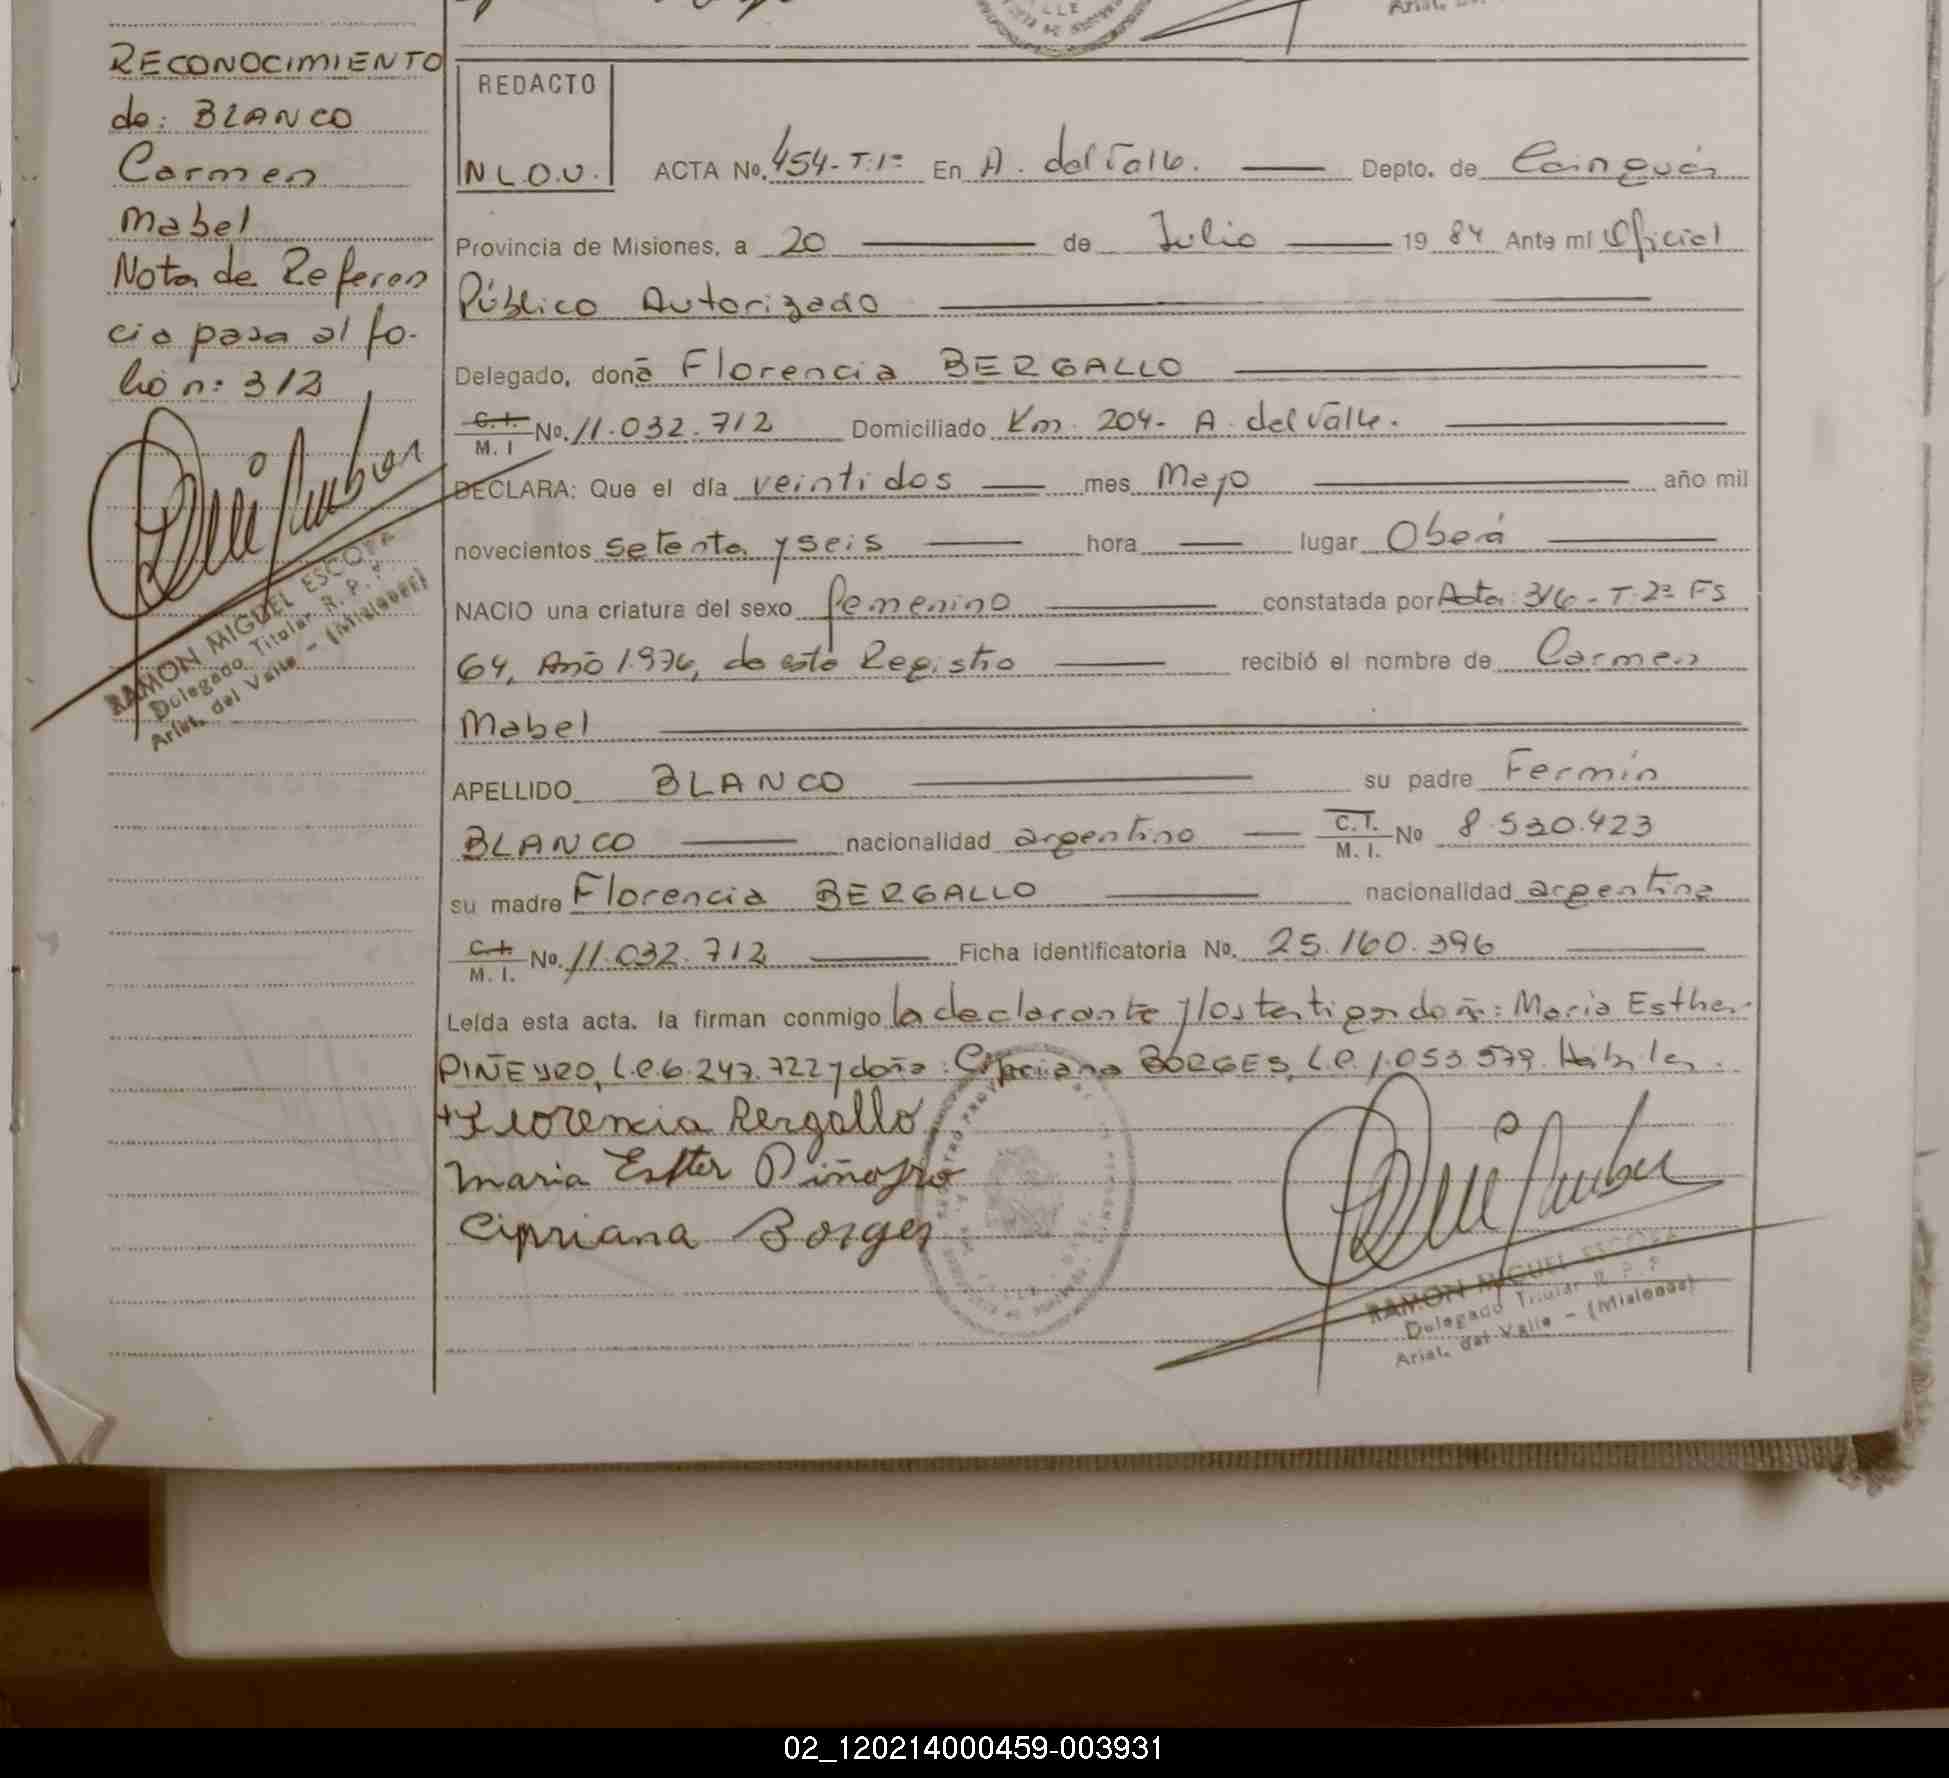 RECONOCIMIENTO
de: BLANCO
Carmen
Mabel
Nota de Referen
cia pasa al fo-
lio n: 312
RAMON MIGUEL ESCO
Delegado Titular R. P. P.
Arist. del Valle - (Misiones)
REDACTO
N L.O.U.
ACTA No. 454-T.1º En A. del Valle. Depto. de Cainguás
Provincia de Misiones, a 20 de Julio 19 84 Ante mi Oficial
Público Autorizado
Delegado, donã Florencia BERGALLO
C.I. M. I No. 11.032.712 Domiciliado Km. 204- A. del Valle.
DECLARA: Que el día veintidos mes Mayo año mil
novecientos setenta y seis hora lugar Oberá
NACIO una criatura del sexo femenino constatada por Acta: 316-T.2º FS
64, Año 1.976, de este Registro recibió el nombre de Carmen
Mabel
APELLIDO BLANCO su padre Fermín
BLANCO nacionalidad argentino C.I. M. I. No 8.530.423
su madre Florencia BERGALLO nacionalidad argentina
C.I. M. I. No. 11.032.712 Ficha identificatoria No. 25.160.396
Leída esta acta. la firman conmigo la declarante y los testigos doña: Maria Esther
PIÑEYRO, L.C.6.247.722 y doña: Cipriana BORGES, L.C.1.053.579. Habiles.
Florencia Bergallo
Maria Ester Piñeyro
Cipriana Borges
RAMON MIGUEL ESCO
Delegado Titular R. P. P.
Arist. del Valle - (Misiones)
02_120214000459-003931